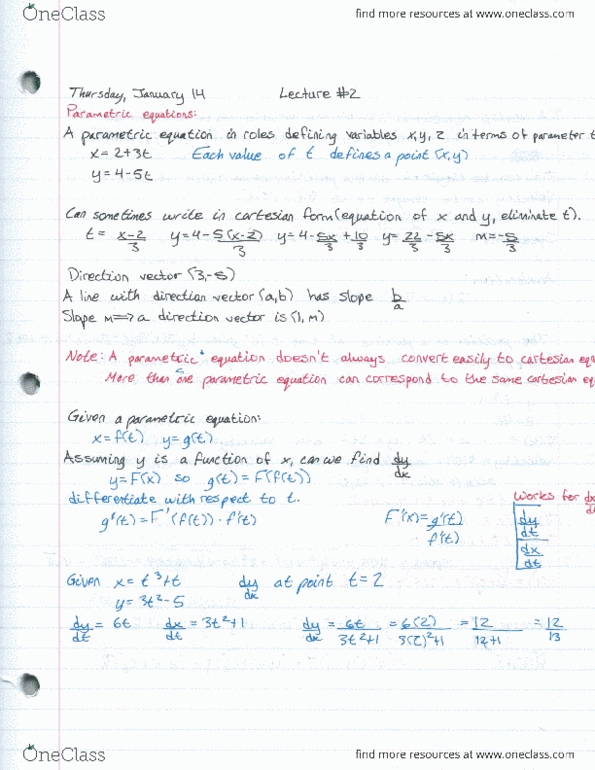 OneClass
find more resources at www.oneclass.com
Thursday, January 14 Lecture #2
Parametric equations:
A parametric equation in roles defining variables x, y, z in terms of parameter t
x = 2+3t Each value of t defines a point (x,y)
y = 4-5t
Can sometimes write in cartesian form (equation of x and y, eliminate t).
t = x-2/3 y = 4 - 5(x-2)/3 y = 4 - 5x/3 + 10/3 y = 22/3 - 5x/3 m = -5/3
Direction vector (3,-5)
A line with direction vector (a,b) has slope b/a
Slope m ⟹ a direction vector is (1, m)
Note: A parametric equation doesn't always convert easily to cartesian equ
More than one parametric equation can correspond to the same cartesian eq
Given a parametric equation:
x = f(t) y = g(t)
Assuming y is a function of x, can we find dy/dx
y = F(x) so g(t) = F(f(t))
differentiate with respect to t. Works for dx
g'(t) = F'(f(t)) · f'(t) F'(x) = g'(t)/f'(t) dy/dt / dx/dt
Given x = t³+t dy/dx at point t = 2
y = 3t²-5
dy/dt = 6t dx/dt = 3t²+1 dy/dx = 6t/3t²+1 = 6(2)/3(2)²+1 = 12/12+1 = 12/13
OneClass
find more resources at www.oneclass.com